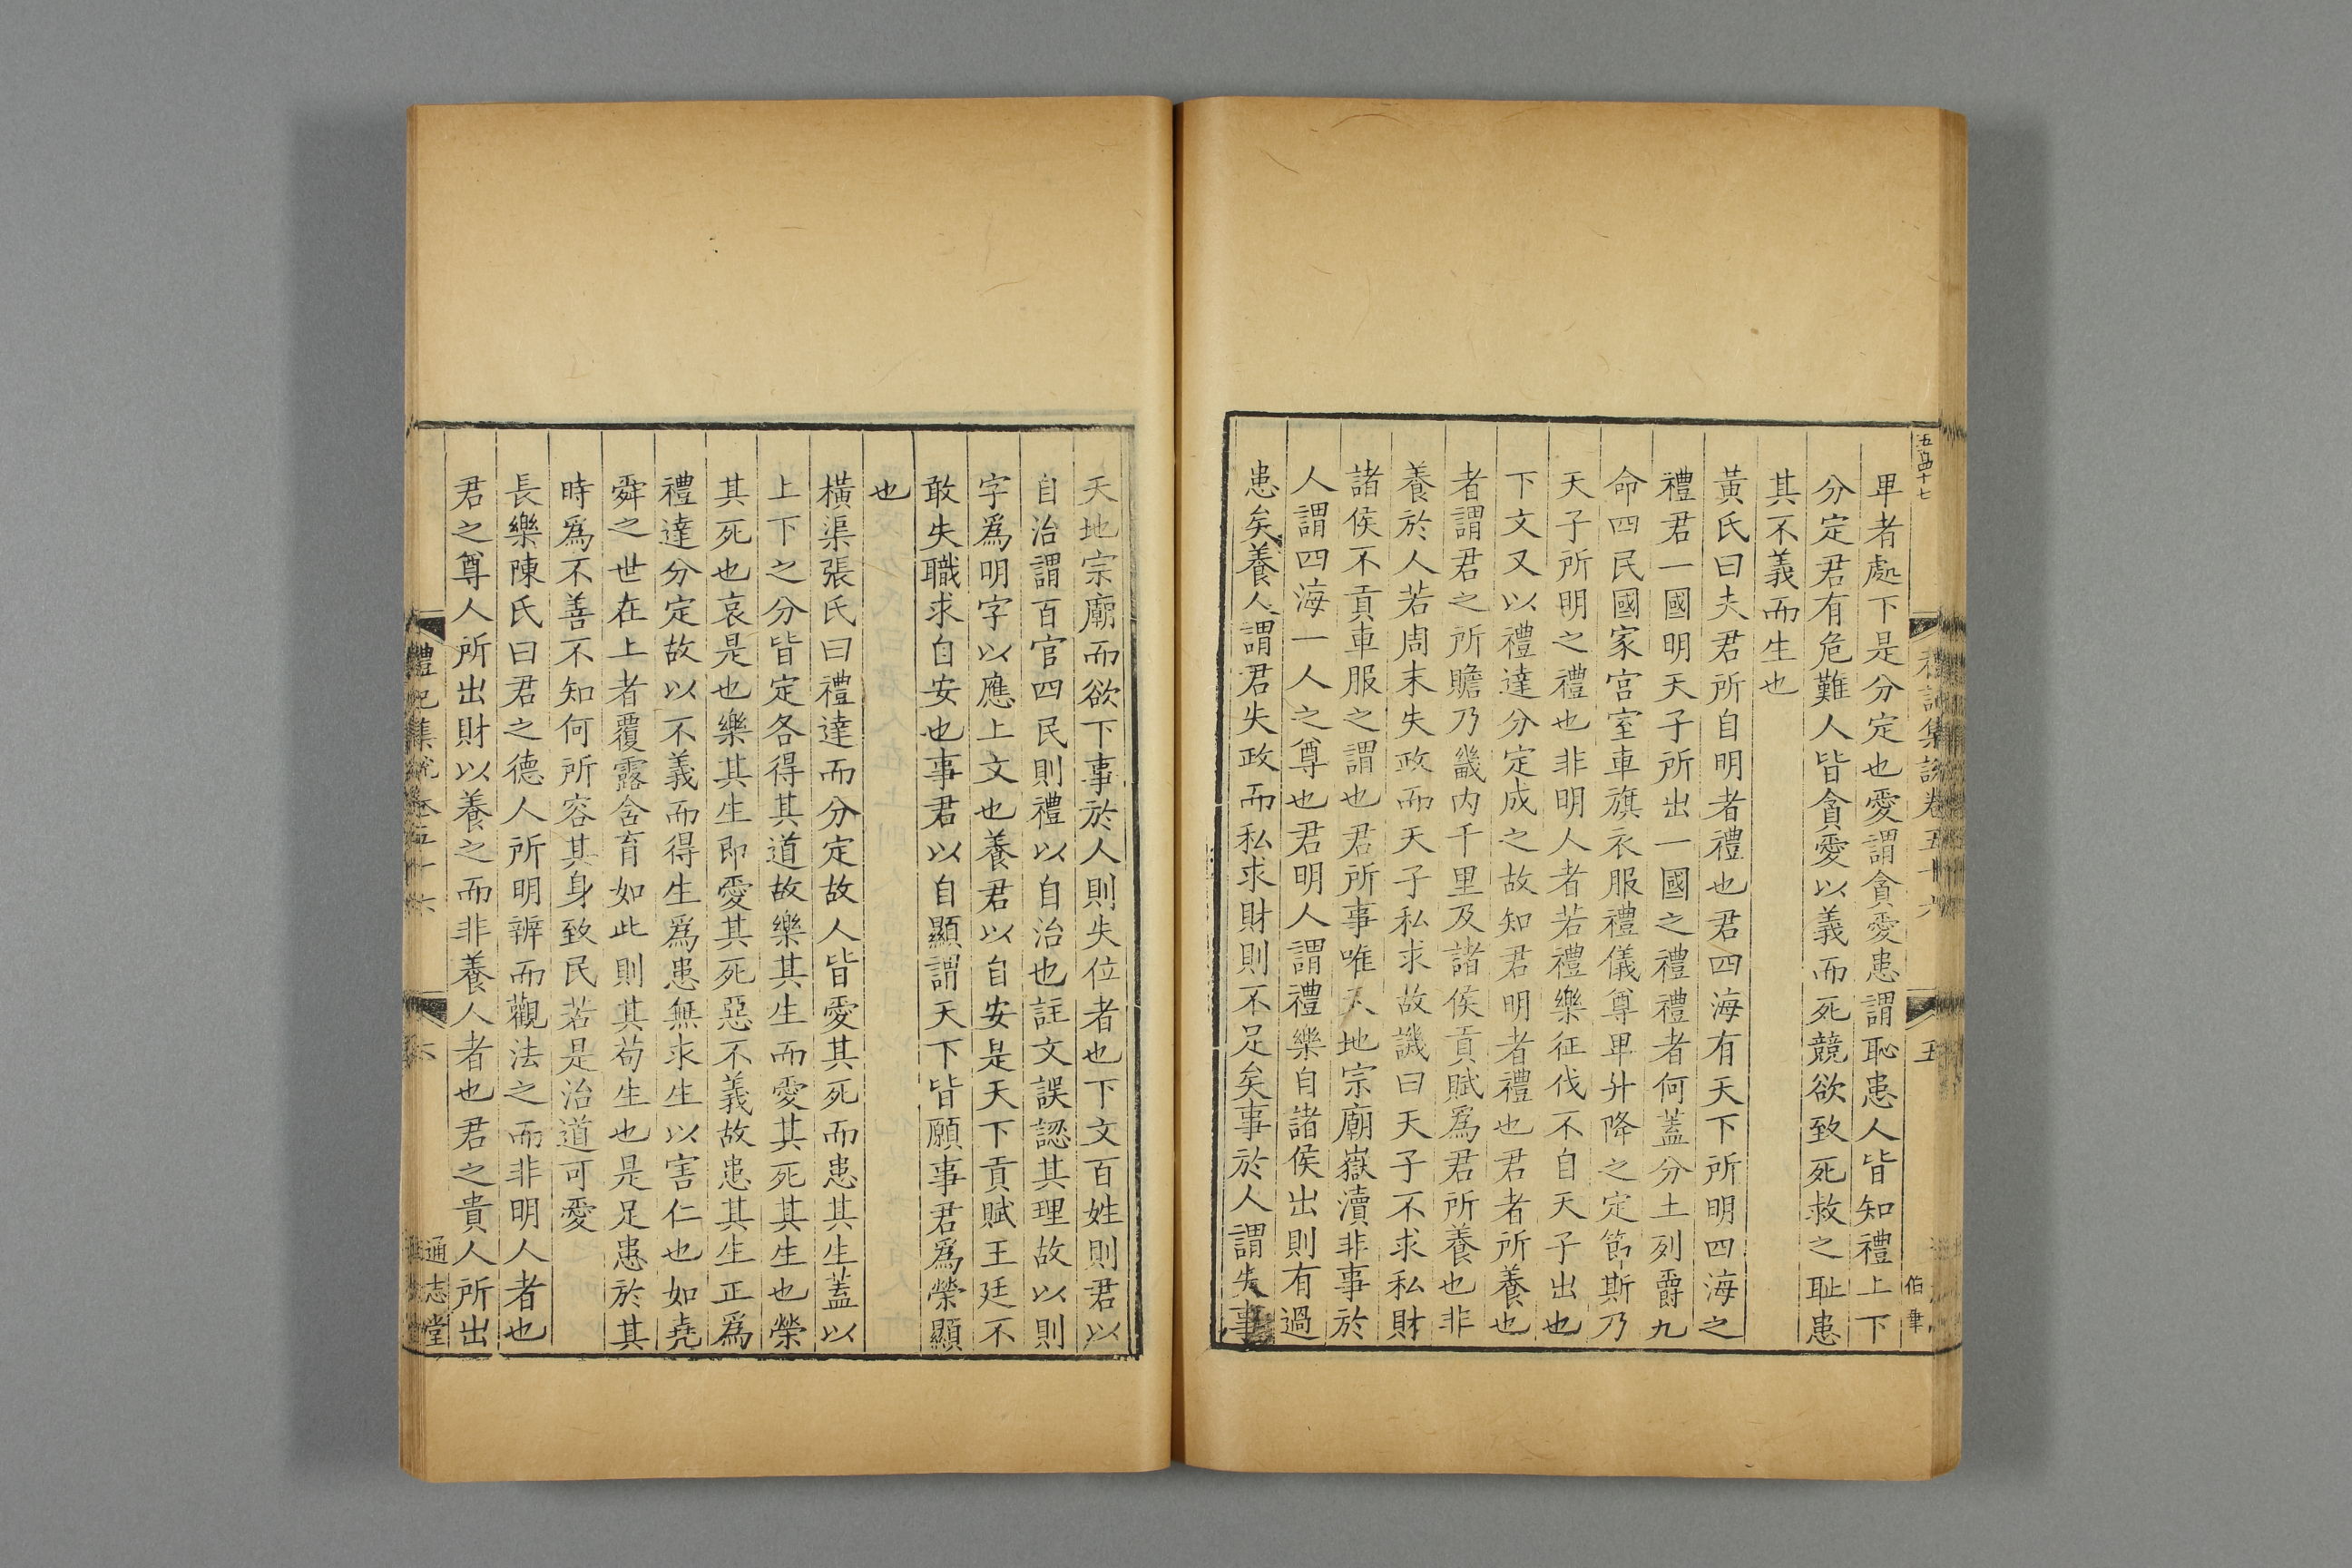 禮記集說卷五十六
五
卑者處下是分定也愛謂貪愛患謂恥患人皆知禮上下
分定君有危難人皆貪愛以義而死競欲致死救之恥患
其不義而生也
黃氏曰夫君所自明者禮也君四海有天下所明四海之
禮君一國明天子所出一國之禮禮者何蓋分土列爵九
命四民國家宮室車旗衣服禮儀尊卑升降之定節斯乃
天子所明之禮也非明人者若禮樂征伐不自天子出也
下文又以禮達分定成之故知君明者禮也君者所養也
者謂君之所贍乃畿内千里及諸侯貢賦爲君所養也非
養於人若周末失政而天子私求故譏曰天子不求私財
諸侯不貢車服之謂也君所事唯天地宗廟嶽瀆非事於
人謂四海一人之尊也君明人謂禮樂自諸侯出則有過
患矣養人謂君失政而私求財則不足矣事於人謂失事
天地宗廟而欲下事於人則失位者也下文百姓則君以
自治謂百官四民則禮以自治也註文誤認其理故以則
字爲明字以應上文也養君以自安是天下貢賦王廷不
敢失職求自安也事君以自顯謂天下皆願事君爲榮顯
也
橫渠張氏曰禮達而分定故人皆愛其死而患其生蓋以
上下之分皆定各得其道故樂其生而愛其死其生也榮
其死也哀是也樂其生即愛其死惡不義故患其生正爲
禮達分定故以不義而得生爲患無求生以害仁也如堯
舜之世在上者覆露含育如此則其苟生也是足患於其
時爲不善不知何所容其身致民若是治道可愛
長樂陳氏曰君之德人所明辨而觀法之而非明人者也
君之尊人所出財以養之而非養人者也君之貴人所出
禮記集說卷五十六
六
通志堂